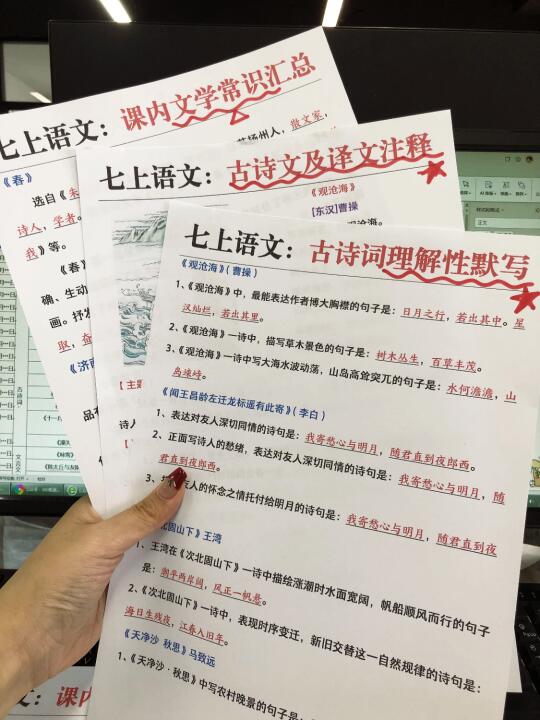 七上语文：课内文学常识汇总
《春》
选自《朱
诗人，学者。
我》等。
《春》
确、生动
画。抒发
《济南
品
七上语文：古诗文及译文注释
《观沧海》
[东汉]曹操
七上语文：古诗词理解性默写
《观沧海》（曹操）
1、《观沧海》中，最能表达作者博大胸襟的句子是：日月之行，若出其中。星
汉灿烂，若出其里。
2、《观沧海》一诗中，描写草木景色的句子是：树木丛生，百草丰茂。
3、《观沧海》一诗中写大海水波动荡，山岛高耸突兀的句子是：水何澹澹，山
岛竦峙。
《闻王昌龄左迁龙标遥有此寄》（李白）
1、表达对友人深切同情的诗句是：我寄愁心与明月，随君直到夜郎西。
2、正面写诗人的愁绪，表达对友人深切同情的诗句是：我寄愁心与明月，随
君直到夜郎西。
3、友人的怀念之情托付给明月的诗句是：我寄愁心与明月，随君直到夜
北固山下》王湾
1、王湾在《次北固山下》一诗中描绘涨潮时水面宽阔，帆船顺风而行的句子
是：潮平两岸阔，风正一帆悬。
2、《次北固山下》一诗中，表现时序变迁，新旧交替这一自然规律的诗句是：
海日生残夜，江春入旧年。
《天净沙 秋思》马致远
1、《天净沙·秋思》中写农村晚景的句子是：
七上语文：课